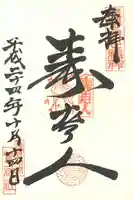 奉拝
寿老人
平成二十四年十月十四日